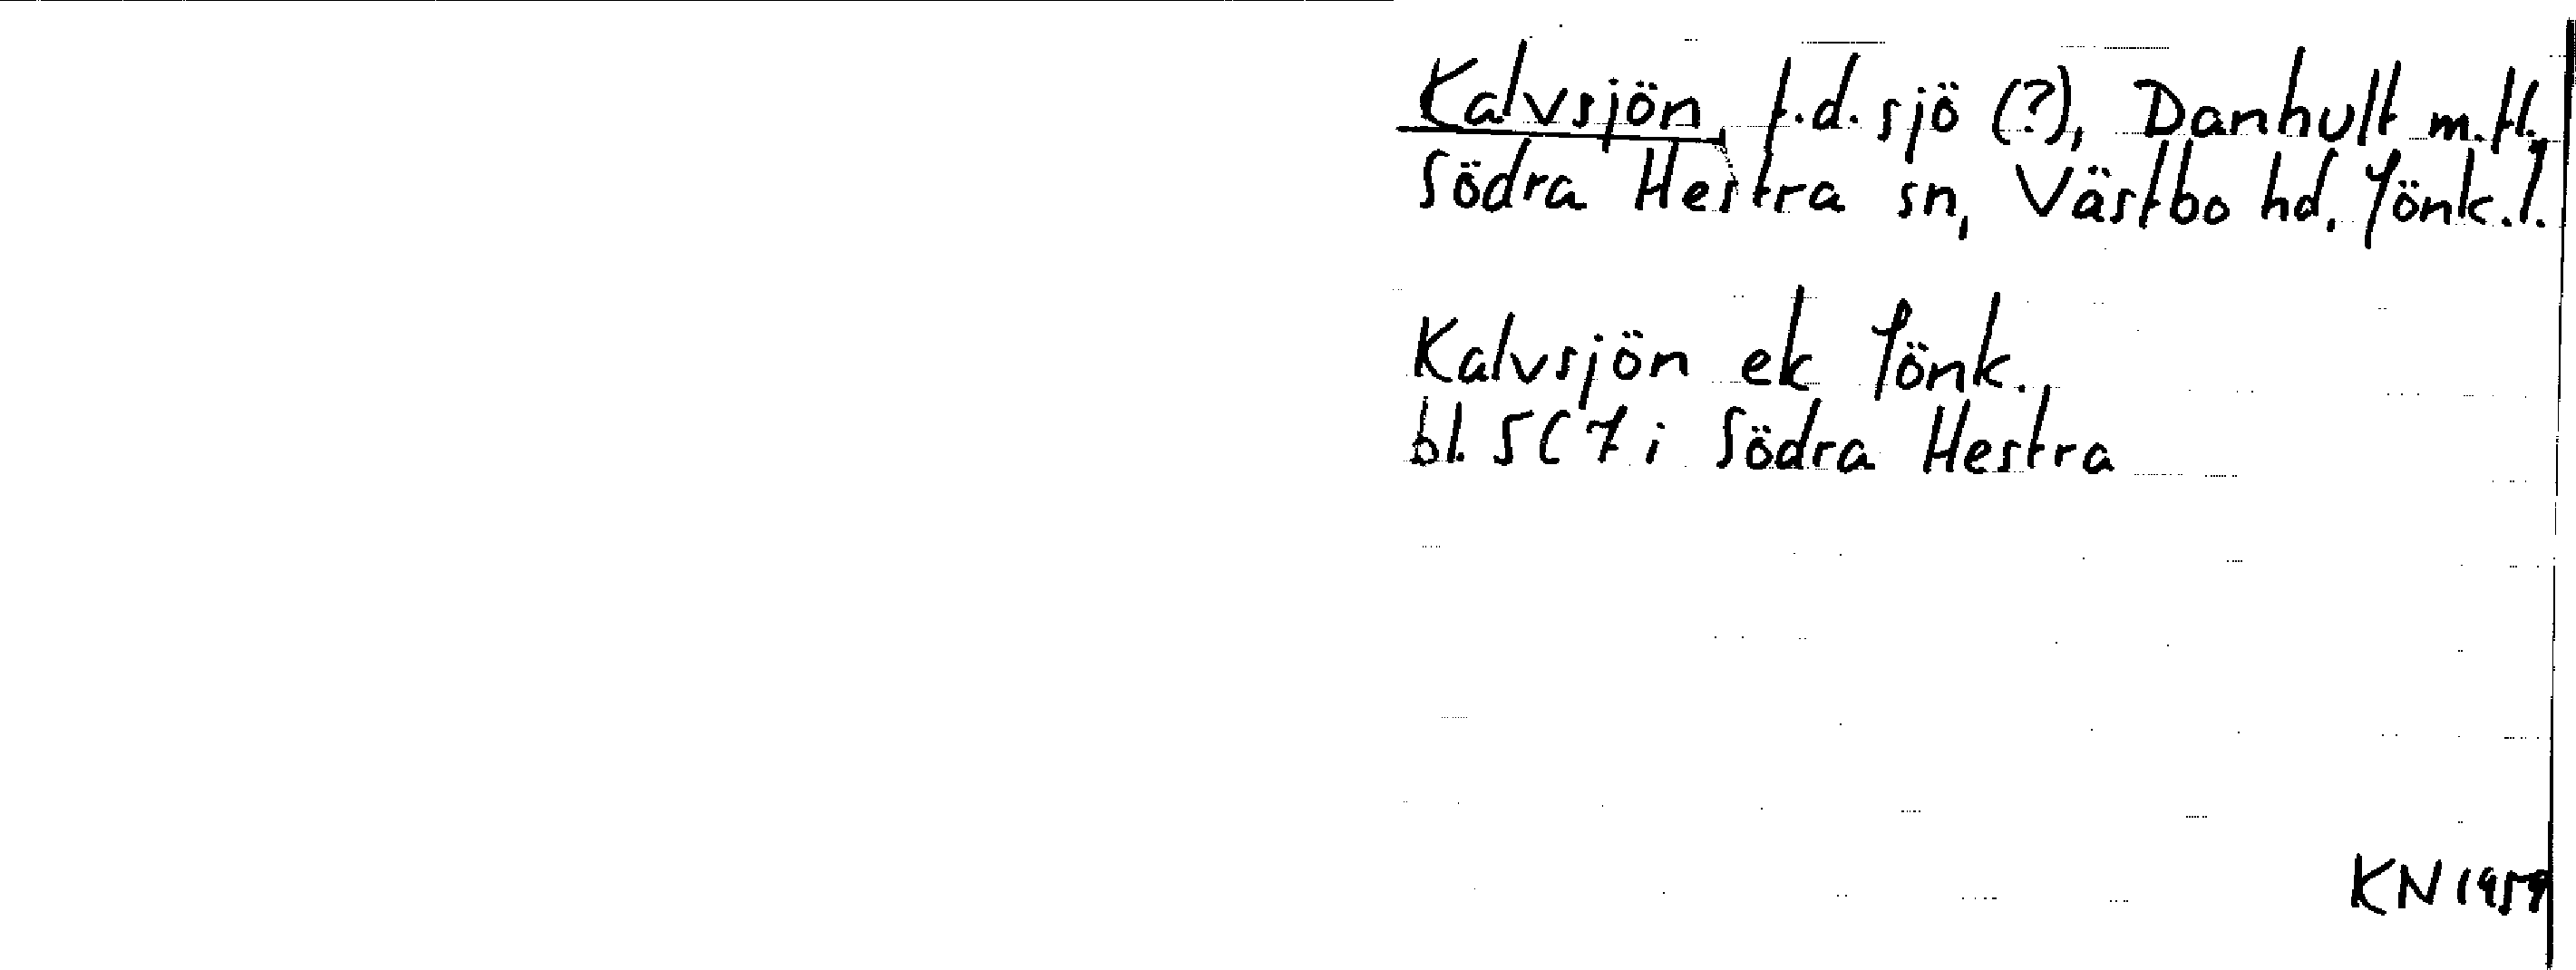 Kalvsjön, f.d. sjö (?), Danhult m.fl.,
Södra Hestra sn, Västbo hd. Jönk.l.
Kalvsjön ek Jönk.
bl. 5C7 i Södra Hestra
KN 1959